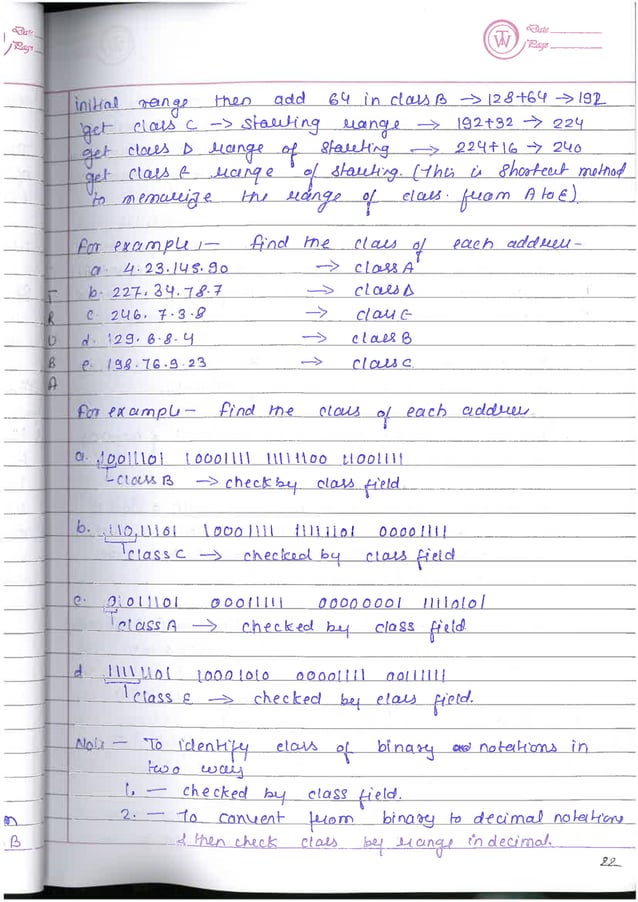 Date
Page
TW
Date
Page
initial range then add 64 in class B → 128+64 → 192
get class C → starting range → 192+32 → 224
get class D range of starting → 224+16 → 240
get class E range of starting. (This is Shortcut method
to memorize the range of class. from A to E).
For example :- find the class of each address -
a. 4.23.145.90 → class A
b. 227.34.78.7 → class D
c. 246.7.3.8 → class E
d. 129.6.8.4 → class B
e. 198.76.9.23 → class C
T
R
U
B
A
For example - find the class of each address.
a. 10011101 10001111 11111100 11001111
class B → check by class field.
b. 11011101 10001111 11111101 00001111
class C → checked by class field
c. 01011101 00011111 00000001 11110101
class A → checked by class field
d. 11111101 10001010 00001111 00111111
class E → checked by class field.
Note - To identify class of binary notations in
two ways
1. - checked by class field.
2. - To convert from binary to decimal notations
& then check class by range in decimal.
B
22